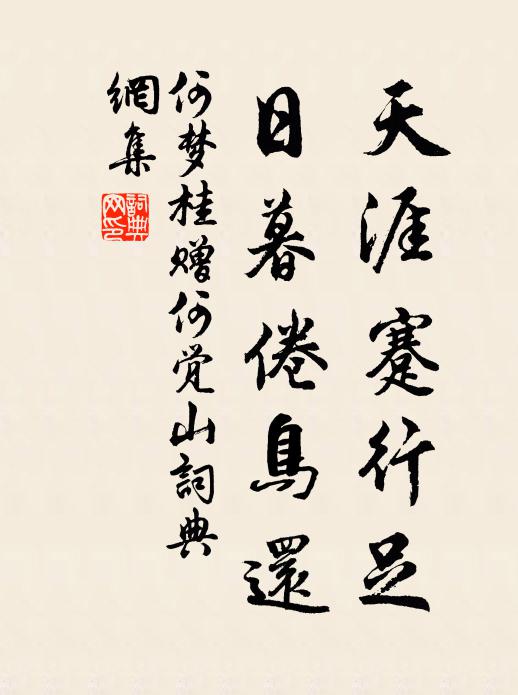 天涯蹇行足
日暮倦鳥還
何梦桂赠何觉山詞典
網集
詞典
网印